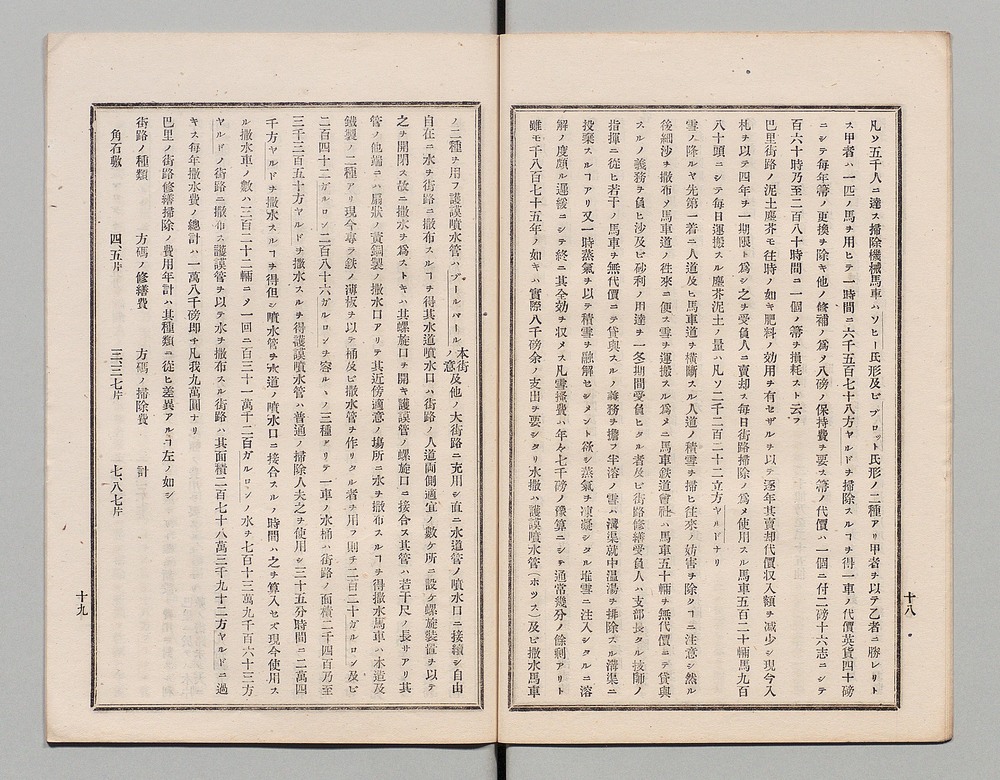 凡ソ五千人ニ達ス掃除機械馬車ハソヒー氏形及ビブロット氏形ノ二種アリ甲者ヲ以テ乙者ニ勝レリト
ス甲者ハ一匹ノ馬ヲ用ヒテ一時間ニ六千五百七十八方ヤルドヲ掃除スルヿヲ得一車ノ代價英貨四十磅
ニシテ每年箒ノ更換ヲ除キ他ノ修補ノ爲ヲ八磅ノ保持費ヲ要ス箒ノ代價ハ一個ニ付二磅十六志ニシテ
百六十時乃至二百八十時間ニ一個ノ箒ヲ損耗スト云フ
巴里街路ノ泥土塵芥モ往時ノ如キ肥料ノ効用ヲ有セザルヲ以テ逐年其賣却代價収入額ヲ減少シ現今入
札ヲ以テ四年ヲ一期限ト爲シ之ヲ受負人ニ賣却ス每日街路掃除ノ爲メ使用スル馬車五百二十輛馬九百
八十頭ニシテ每日運搬スル塵芥泥土ノ量ハ凡ソ二千二百二十二立方ヤルドナリ
雪ノ降ルヤ先第一着ニ人道及ヒ馬車道ヲ橫斷スル人道ノ積雪ヲ掃ヒ往來ノ妨害ヲ除クヿニ注意シ然ル
後細沙ヲ撒布ソ馬車道ノ往來ニ便ス雪ヲ運搬スル爲メニ馬車鉄道會社ハ馬車五十輛ヲ無代價ニテ貸與
スルノ義務ヲ負ヒ沙及ビ砂利ノ用達ヲ一冬期間受負ヒタル者及ビ街路修繕受負人ハ支部長タル技師ノ
指揮ニ從ヒ若干ノ馬車ヲ無代價ニテ貸與スルノ義務ヲ擔フ半溶ノ雪ハ溝渠就中温湯ヲ排除スル溝渠ニ
投棄スルヿアリ又一時蒸氣ヲ以テ積雪ヲ融解セシメント欲シ蒸氣ヲ凍凝シタル堆雪ニ注入シタルニ溶
解ノ度頗ル遲緩ニシテ終ニ其全効ヲ収メス凡雪掻費ハ年々七千磅ノ豫算ニシテ通常幾分ノ餘剰アリト
雖モ千八百七十五年ノ如キハ實際八千磅余ノ支出ヲ要シタリ水撒ハ護謨噴水管(ホツス)及ビ撒水馬車
十八
ノ二種ヲ用フ護謨噴水管ハブールバール本街ノ意及他ノ大街路ニ充用シ直ニ水道管ノ噴水口ニ接續シ自由
自在ニ水ヲ街路ニ撒布スルヿヲ得其水道噴水口ハ街路ノ人道両側適宜ノ數ケ所ニ設ケ螺旋裝置ヲ以テ
之ヲ開閉ス故ニ撒水ヲ爲ストキハ其螺旋口ヲ開キ護謨管ノ螺旋口ニ接合ス其管ハ若干尺ノ長サアリ其
管ノ他端ニハ扇狀ノ黄銅製ノ撒水口アリテ其近傍適意ノ塲所ニ水ヲ撒布スルヿヲ得撒水馬車ハ木造及
鐵製ノ二種アリ現今專ラ鉄ノ薄板ヲ以テ桶及ビ撒水管ヲ作リタル者ヲ用フ則チ二百二十ガルロン及ビ
二百四十二ガルロン二百八十六ガルロンヲ容ルヽノ三種アリテ一車ノ水桶ハ街路ノ面積二千四百乃至
三千三百五十方ヤルドヲ撒水スルヲ得護謨噴水管ハ普通ノ掃除人夫之ヲ使用シ三十五分時間ニ二萬四
千方ヤルドヲ撒水スルヿヲ得但シ噴水管ヲ水道ノ噴水口ニ接合スルノ時間ハ之ヲ算入セズ現今使用ス
ル撒水車ノ數ハ三百二十二輛ニソ一回ニ百三十一萬千二百ガルロンノ水ヲ七百十三萬九千百六十三方
ヤルドノ街路ニ撒布ス護謨管ヲ以テ水ヲ撒布スル街路ハ其面積二百七十八萬三千九十二方ヤルドニ過
キス每年撒水費ノ總計ハ一萬八千磅即チ凡我九萬圓ナリ
巴里ノ街路修繕掃除ノ費用年計ハ其種類ニ從ヒ差異アルヿ左ノ如シ
街路ノ種類　方碼ノ修繕費　方碼ノ掃除費　計
角石敷　四、五片　三、三七片　七、八七片
十九